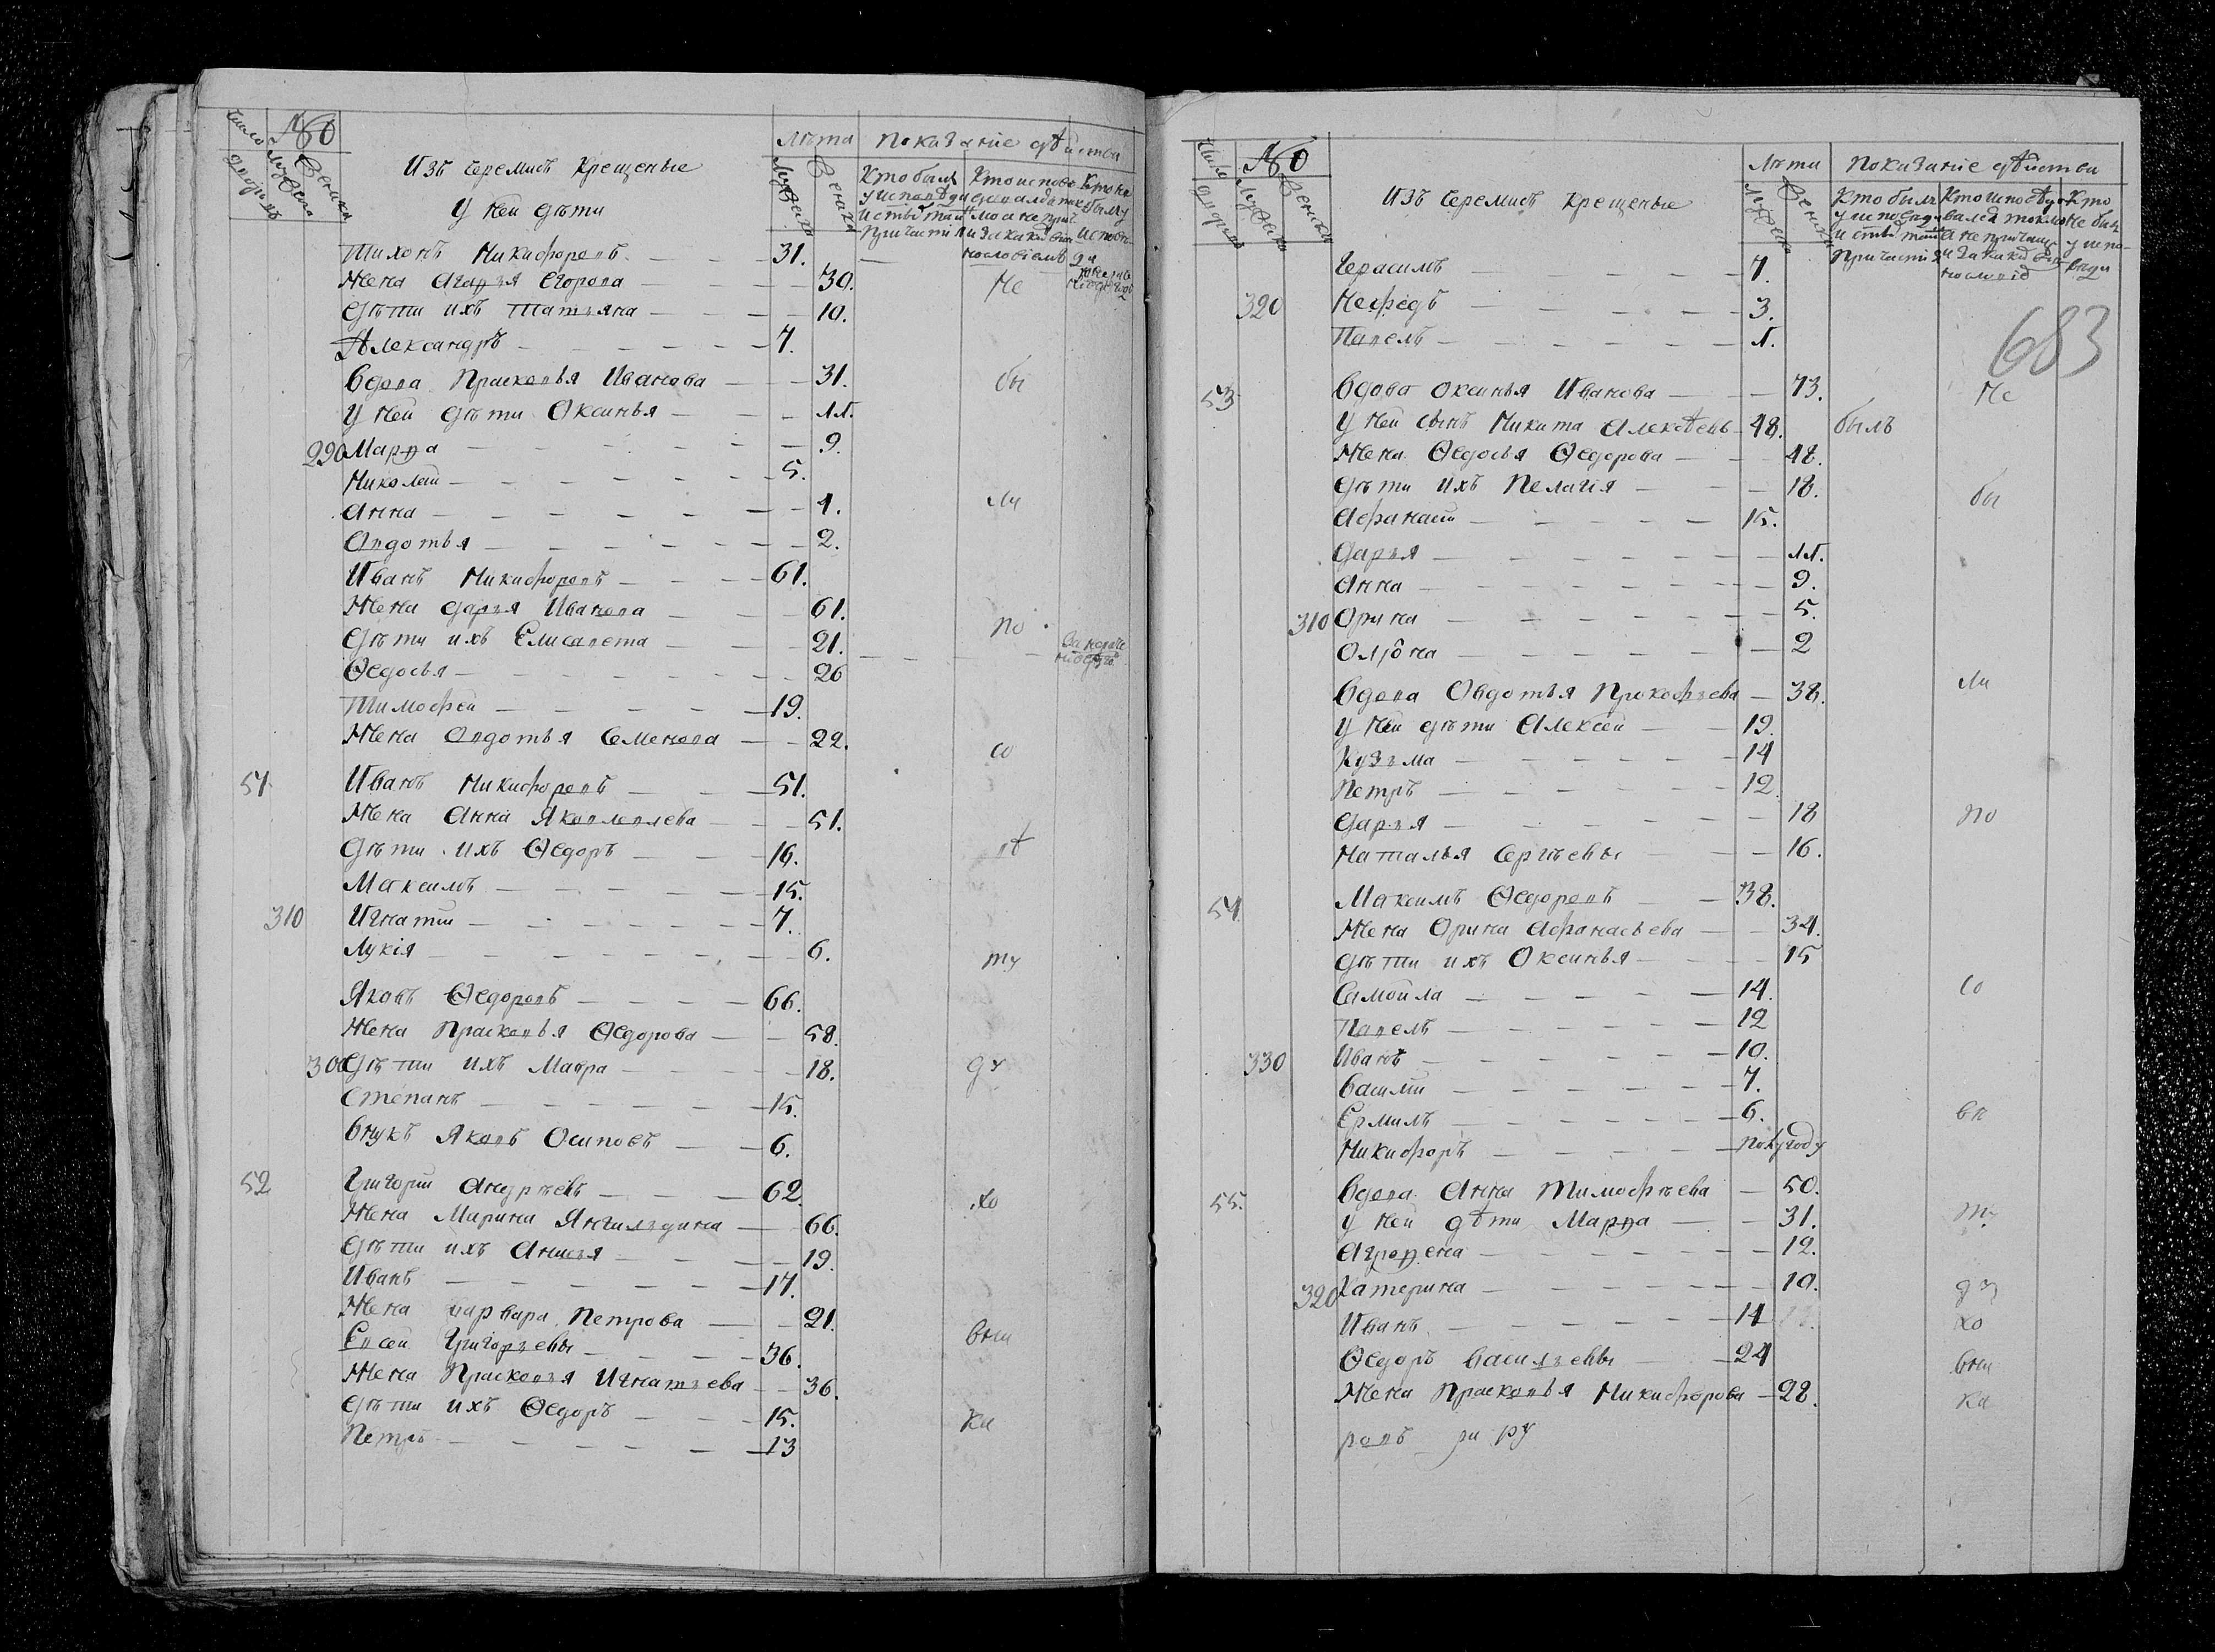 Число дворовъ
№
Мужска
Женска
Изъ Черемисъ Крещеные
Лѣта
Мужска
Женска
Показаніе дѣйства
Кто былъ у исповѣди и святаго причастія
У ней дѣти
Тихонъ Никифоровъ 31.
Жена Агафья Егорова 30. Не
Дѣти ихъ Татьяна 10.
Александръ 7.
Вдова Прасковья Иванова 31. бы
У ней дѣти Оксинья 11.
290 Марфа 9.
Николай 5.
Анна 4. ли
Авдотья 2.
Иванъ Никифоровъ 61.
Жена Дарья Иванова 61.
Дѣти ихъ Елисавета 21. по
Ѳедосья 26
Тимофей 19.
Жена Авдотья Семенова 22. со
51 Иванъ Никифоровъ 51.
Жена Анна Яковлевлева 51.
Дѣти ихъ Ѳедоръ 16. вѣ
Максимъ 15.
310 Игнатій 7.
Лукія 6. ту
Яковъ Ѳедоровъ 66.
Жена Прасковья Ѳедорова 58.
300 Дѣти ихъ Мавра 18. ду
Степанъ 15.
Внукъ Яковъ Осиповъ 6.
52 Григорій Андрѣевъ 62. хо
Жена Марина 66.
Дѣти ихъ Анисья 19.
Иванъ 17.
Жена Варвара Петрова 21. вни
Евсей Григорьевы 36.
Жена Прасковья Игнатьева 36.
Дѣти ихъ Ѳедоръ 15. ка
Петръ 13
Число дворовъ
№
Мужска
Женска
Изъ Черемисъ Крещеные
Лѣта
Мужска
Женска
Показаніе дѣйства
Кто былъ у исповеди и святаго причастія
683
Герасимъ 7.
320 Нефедъ 3.
Павелъ 1.
53 Вдова Оксинья Иванова 73. Не
У ней сынъ Никита Алексѣевъ 48. былъ
Жена Ѳедосья Ѳедорова 48.
Дѣти ихъ Пелагія 18. бы
Афанасій 15.
Дарья 11.
Анна 9.
310 Орина 5.
Олйона 2
Вдова Овдотья Прокофьева 38. ли
У ней дѣти Алексей 19.
Кузьма 14
Петръ 12
Дарья 18 по
Наталья Сергѣевы 16.
54 Максимъ Ѳедоровъ 38.
Жена Орина Афанасьева 34.
Дѣти ихъ Оксинья 15
Самойла 14. со
Павелъ 12
330 Иванъ 10.
Василій 7.
Ермилъ 6. вѣ
Никифоръ полугоду
55. Вдова Анна Тимофѣева 50.
У ней дѣти Марфа 31. ту
Агрофена 12.
320 Катерина 10. ду
Иванъ 14 хо
Ѳедоръ Васильевы 24 вни
Жена Прасковья Никифорова 28. ка
ровъ ри ру